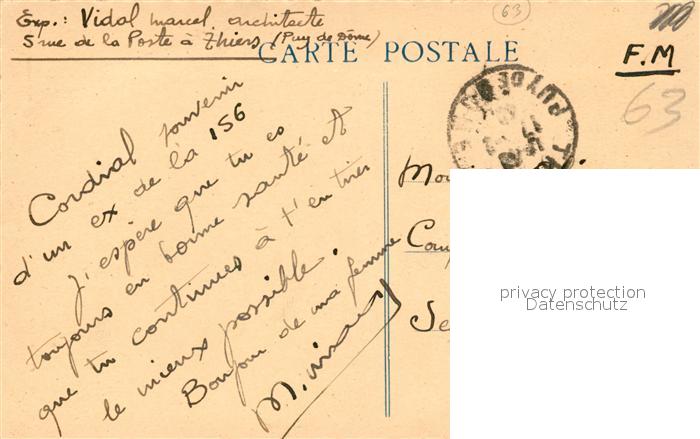 Exp.: Vidal Marcel, architecte
5 rue de la Poste à Thiers (Puy de Dôme)
CARTE POSTALE
63
F.M
63
PUY DE
Cordial souvenir
d'un ex de la 156
J'espère que tu es
toujours en bonne santé et
que tu continues à t'en tirer
le mieux possible.
Bonjour de ma femme
privacy protection
Datenschutz